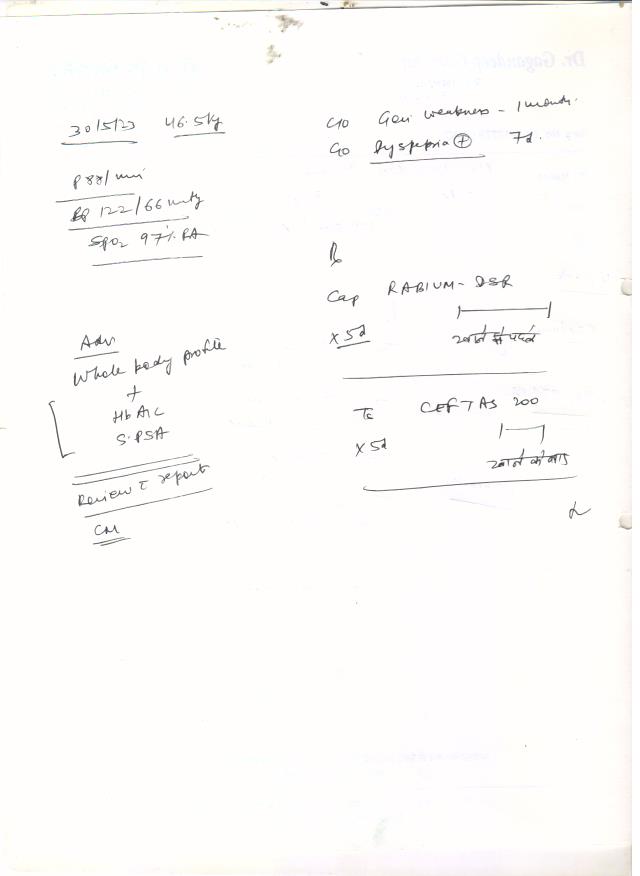 30/5/23 46.5kg
P 88/min
BP 122/66 mmHg
SPO2 97% RA
Adv
Whole body profile
+
HbA1C
S.PSA
Review c̄ report
C/O Gen weakness - 1 month.
C/O Dyspepsia ⊕ 7d.
Rx
Cap RABIUM-DSR
|———|
x 5d खाने से पहले
CEFTAS 200
|—|
x 5d खाने के बाद